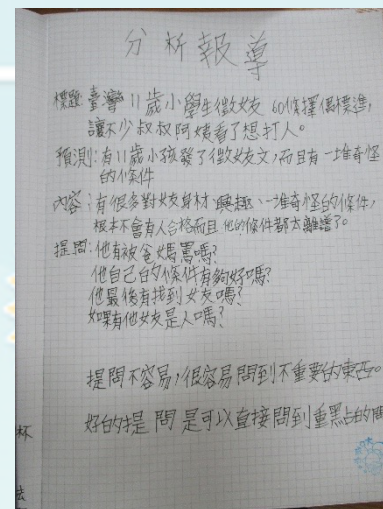 分析報導
標題:臺灣11歲小學生徵女友 60條擇偶標準,
讓不少叔叔阿姨看了想打人。
預測:有11歲小孩發了徵女友文,而且有一堆奇怪
的條件
內容:有很多對女友身材、興趣、一堆奇怪的條件,
根本不會有人合格而且他的條件都太離譜了。
提問:他有被爸媽罵嗎?
他自己的條件有夠好嗎?
他最後有找到女友嗎?
如果有他女友是人嗎?
提問不容易,很容易問到不重要的東西。
好的提問是可以直接問到重點的問
杯
法